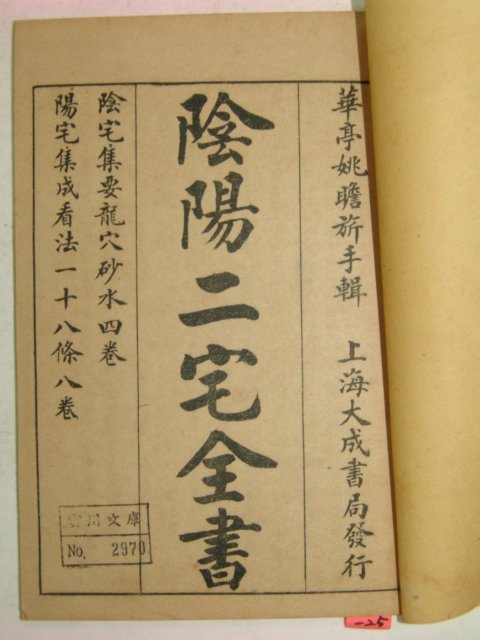 華亭姚瞻旂手輯 上海大成書局發行
陰陽二宅全書
陰宅集要龍穴砂水四卷
陽宅集成看法一十八條八卷
川文庫
No. 2970
-25